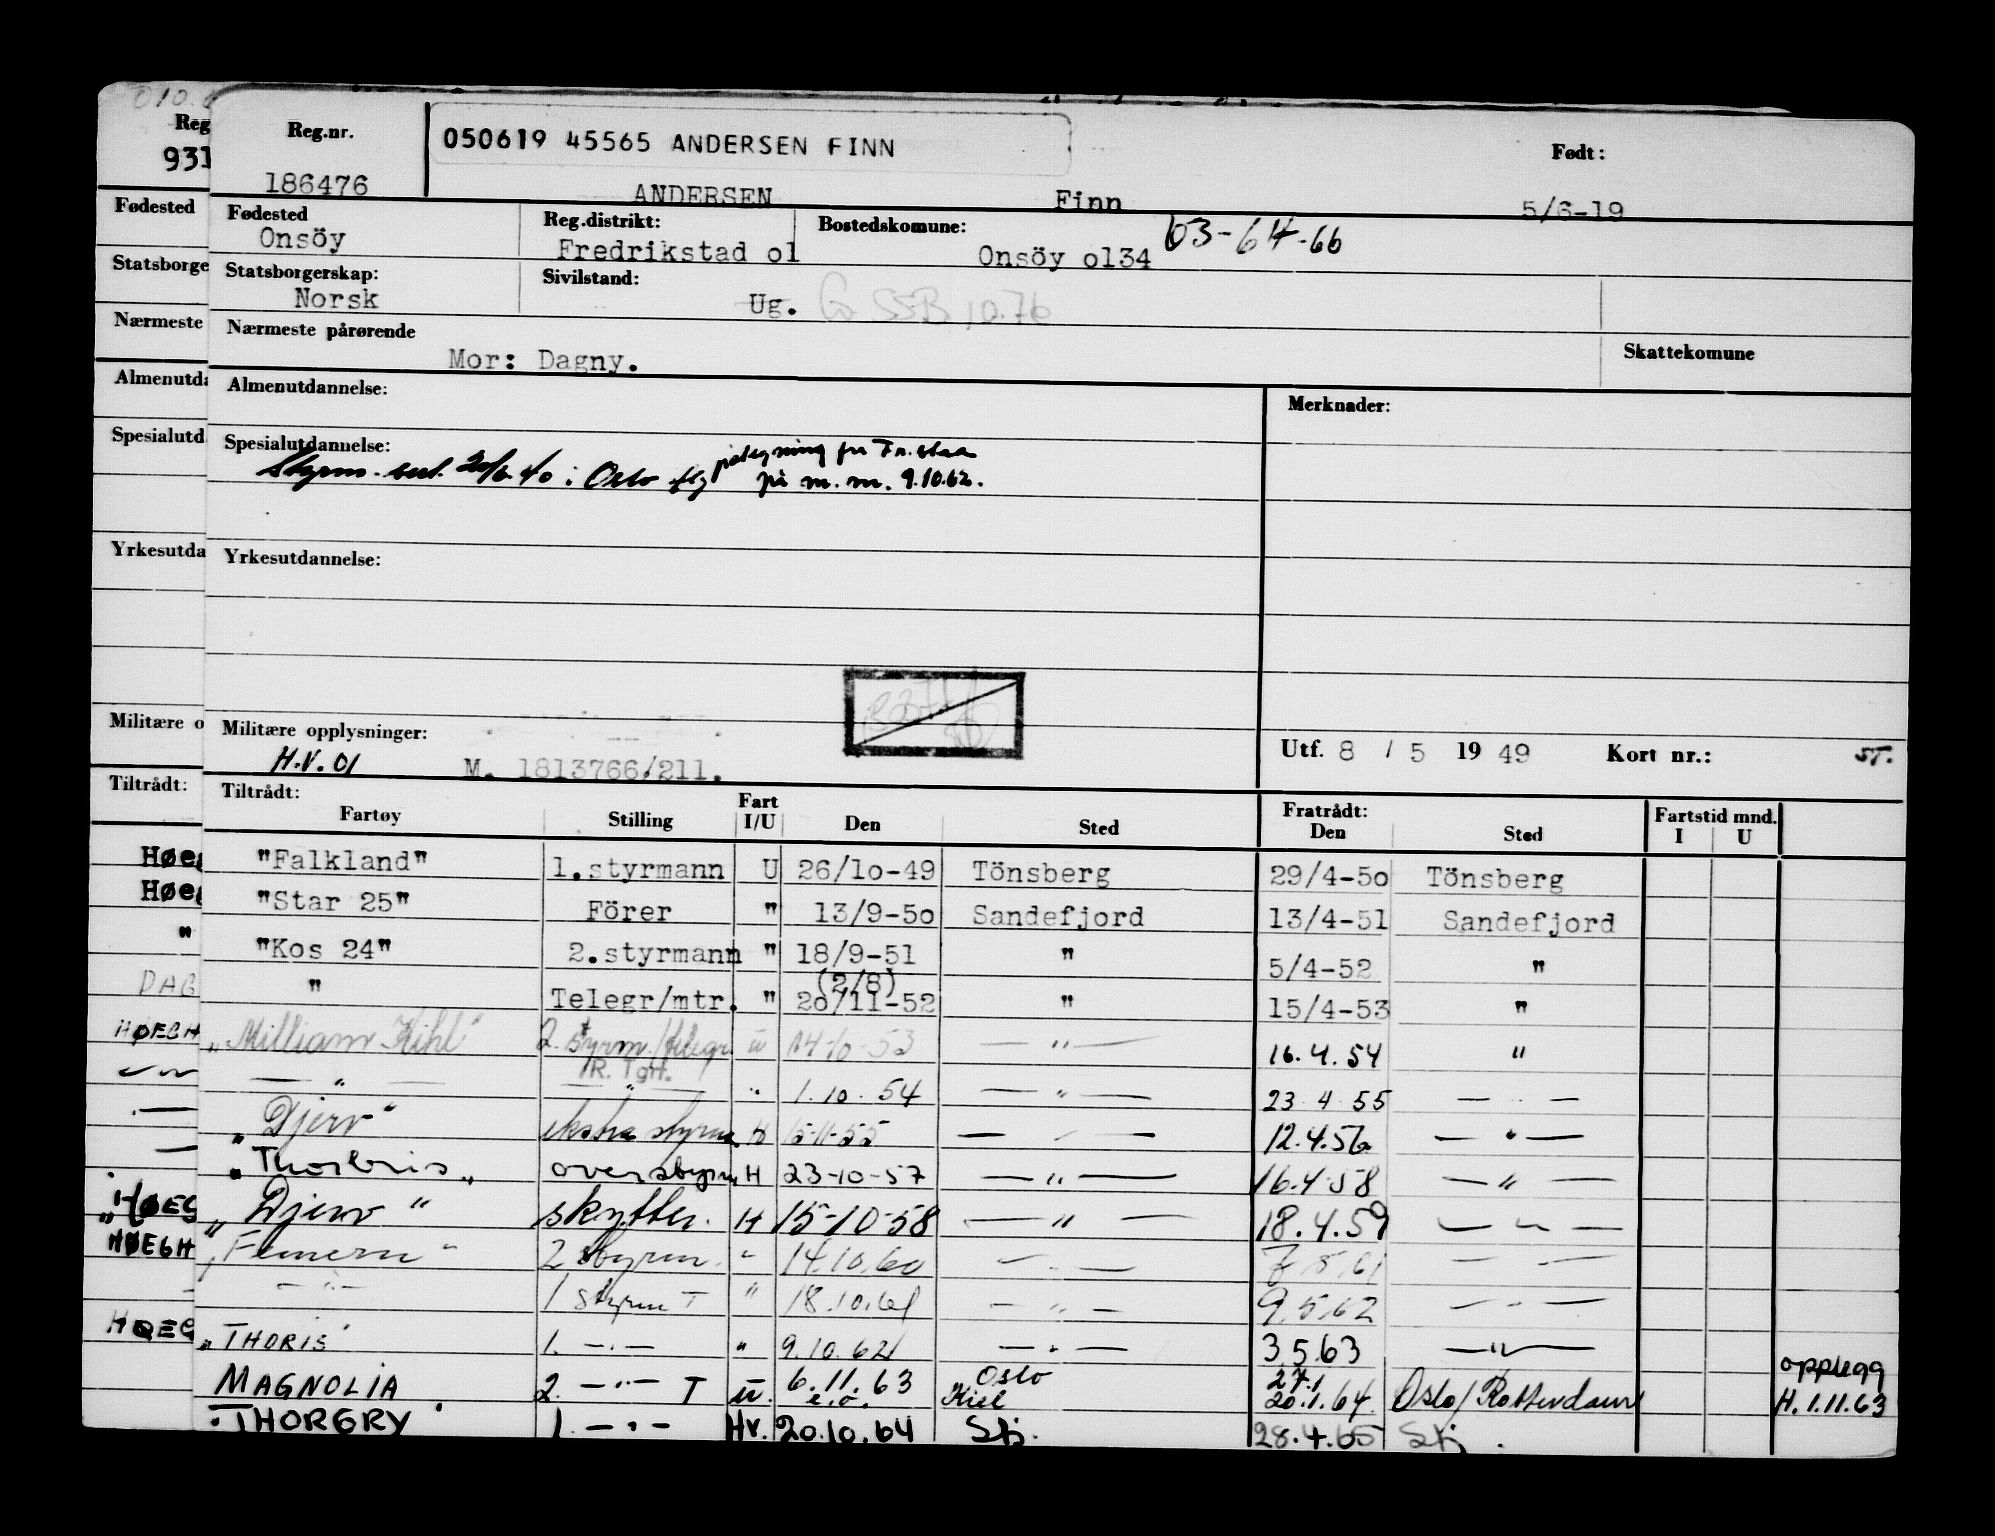 Reg
931
Fødested
Statsborge
Nærmeste
Almenutda
Spesialutd
Yrkesutda
Militære o
Tiltrådt:
Høeg
Høeg
"
DAG
HØEGH
HØEG
HØEGH
HØEG
Reg.nr. 050619 45565 ANDERSEN FINN Født:
186476 ANDERSEN Finn 5/6-19
Fødested Reg.distrikt: Bostedskomune: 63-64-66
Onsöy Fredrikstad o1 Onsöy o134
Statsborgerskap: Sivilstand:
Norsk Ug. SSB 10.76
Nærmeste pårørende Skattekomune
Mor: Dagny.
Almenutdannelse: Merknader:
Spesialutdannelse:
Styrm. sert. 20/6 40 i Oslo
på m.m. 9.10.62.
Yrkesutdannelse:
Militære opplysninger:
H.V. 01 M. 1813766/211.
Utf. 8 / 5 1949 Kort nr.: ST.
Tiltrådt: Fart Fratrådt: Fartstid mnd.
Fartøy Stilling I/U Den Sted Den Sted I U
"Falkland" 1.styrmann U 26/1o-49 Tönsberg 29/4-5o Tönsberg
"Star 25" Förer " 13/9-5o Sandefjord 13/4-51 Sandefjord
"Kos 24" 2.styrmann " 18/9-51 " 5/4-52 "
(2/8)
" Telegr/mtr. " 2o/11-52 " 15/4-53 "
"William Kihl" 2. styrm/telegr. u 14-10-53 — " — 16.4.54 "
/R. Tgrf.
— " — — " — " 1.10.54 — " — 23 4 55 — " —
"Djerv" ekstra styrm. H 15-11-55 — " — 12.4.56 — " —
"Thorbris" overstyrm. H 23-10-57 — " — 16.4.58 — " —
"Djerv" skytter. H 15-10-58 — " — 18.4.59 — " —
"Femern" 2 styrm. " 14.10.60 — " — 7.5.61 — " —
— " — 1 styrm T " 18.10.61 — " — 9.5.62 — " —
"THORIS" 1. — " — " 9.10.62 — " — 3.5.63 — " — opplegg
MAGNOLIA 2. — " — T u. 6.11.63 Oslo 27.1 H. 1.11.63
e.o. Kiel 20.1.64 Oslo/Rotterdam
"THORGRY" 1. — " — Hv. 20.10.64 Stj. 28.4.65 Stj.